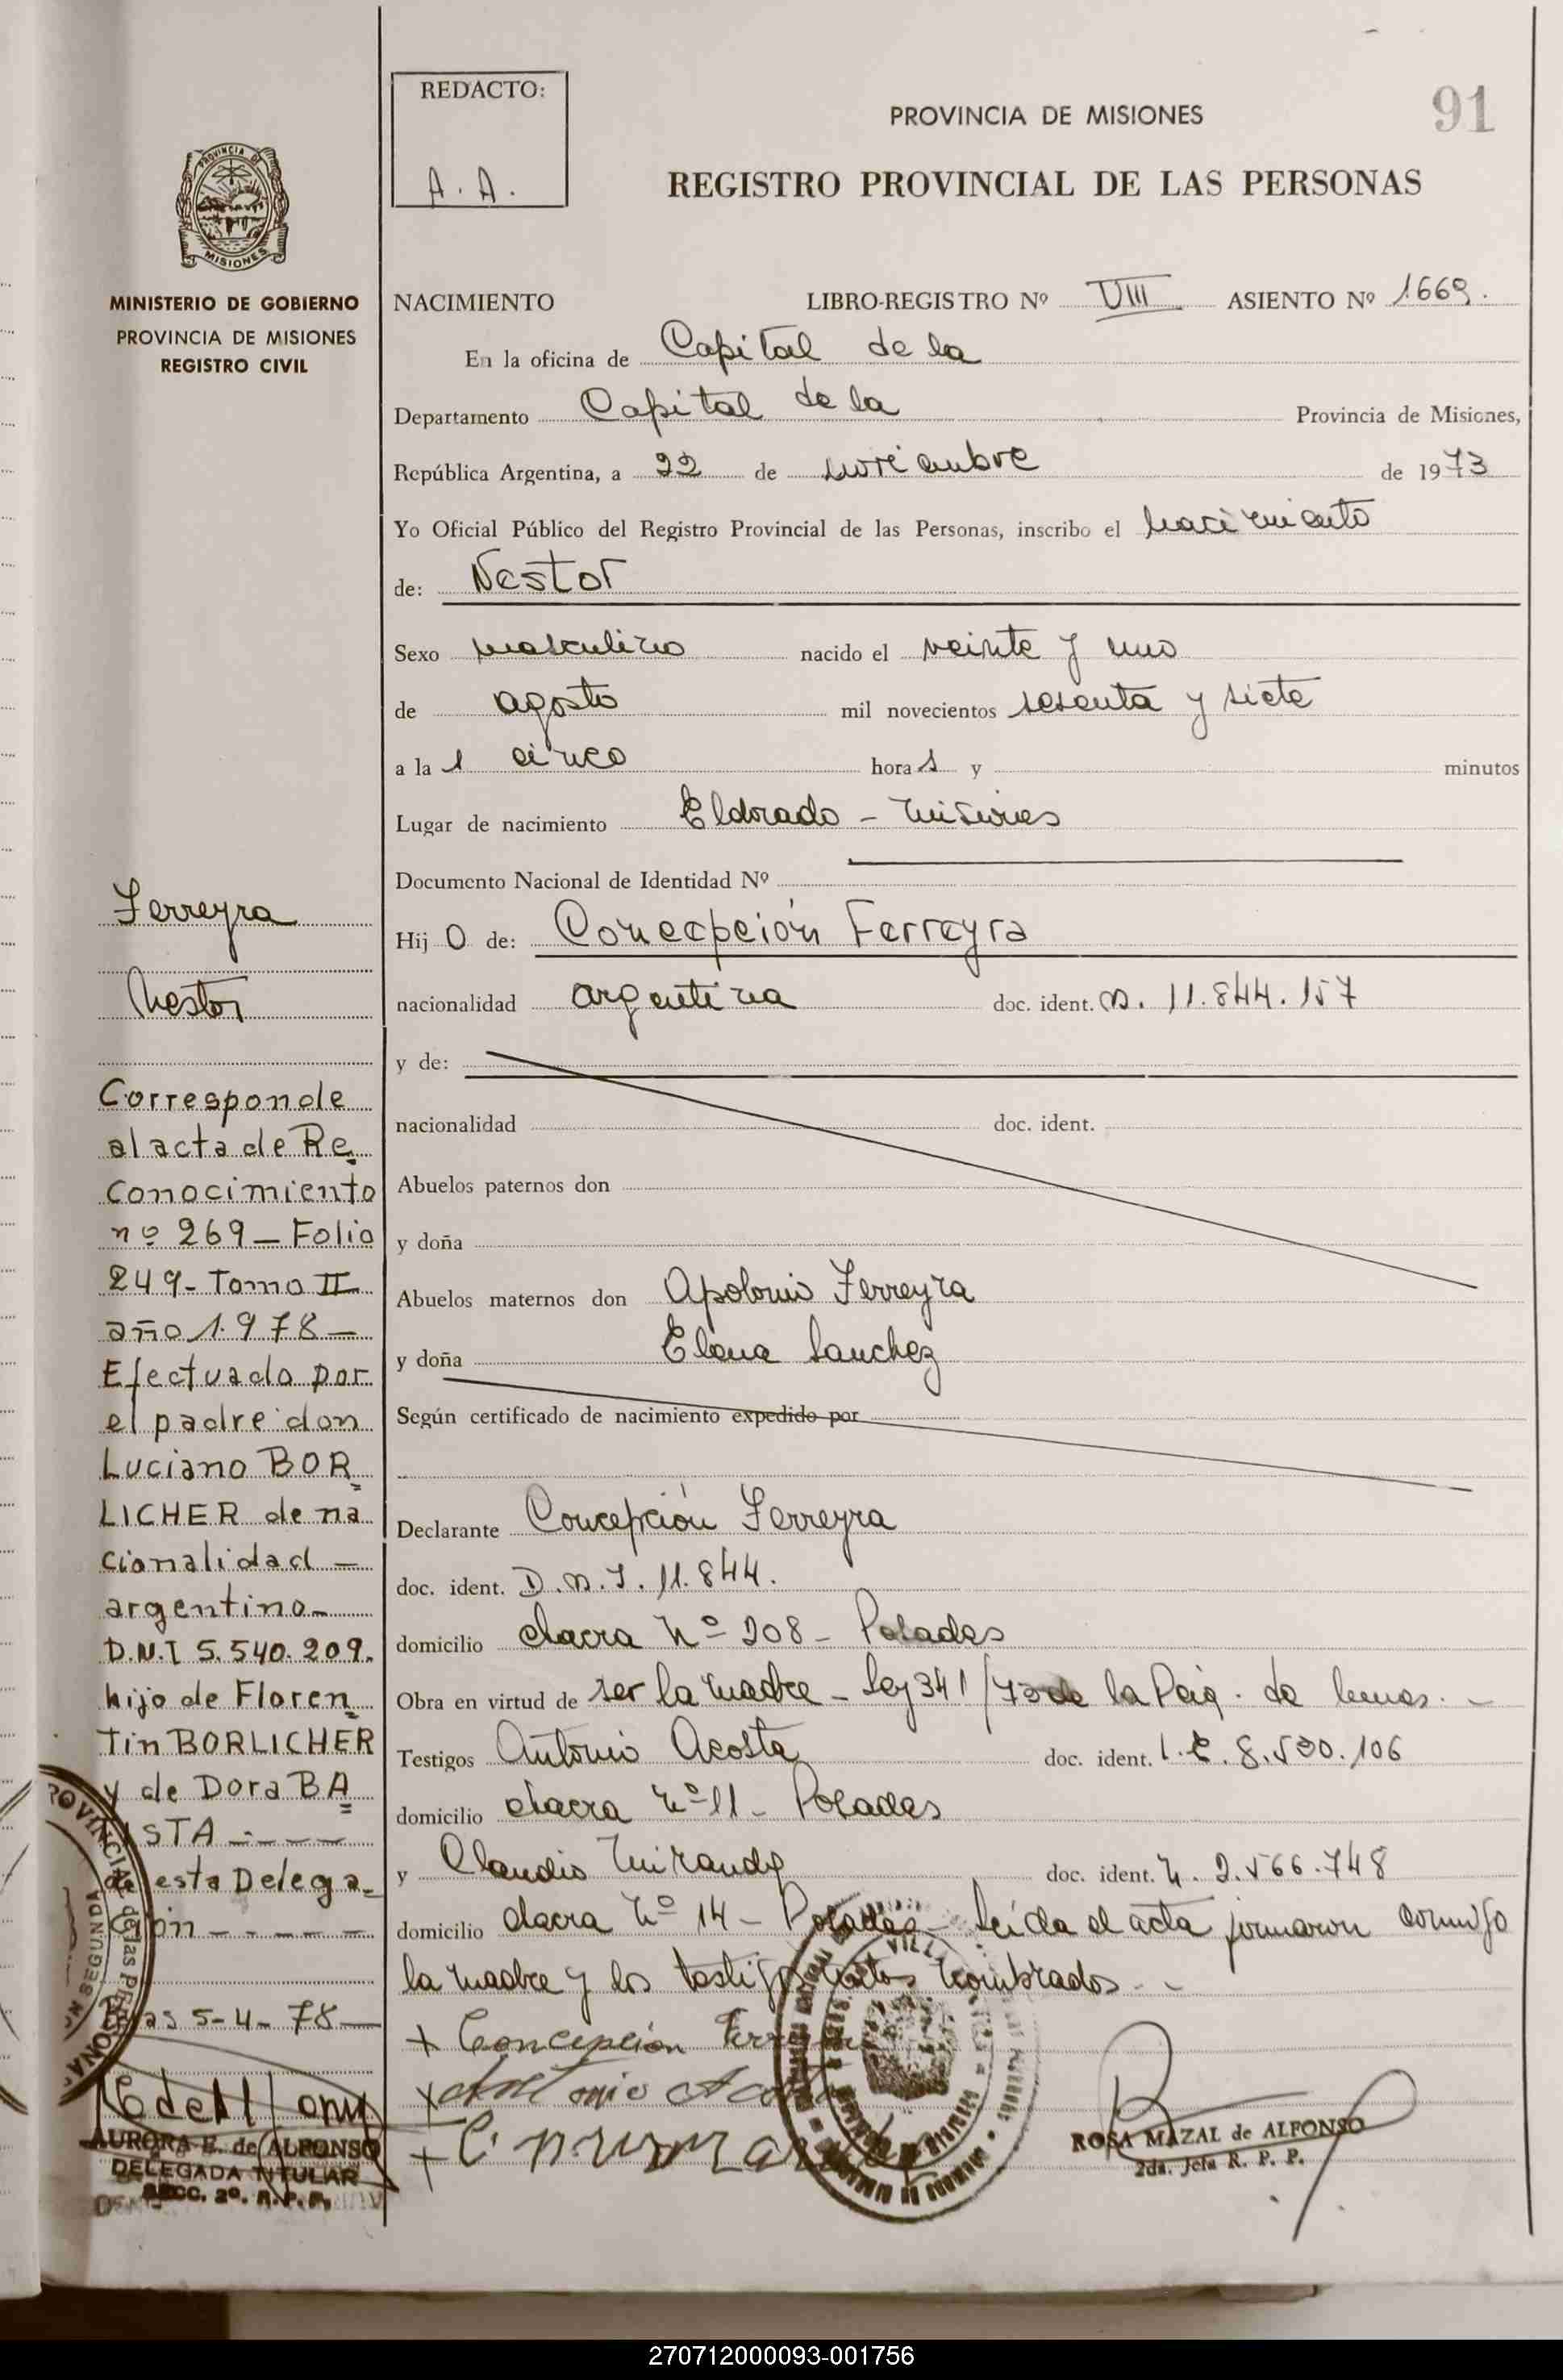 REDACTO:
A. A.
91
PROVINCIA DE MISIONES
REGISTRO PROVINCIAL DE LAS PERSONAS
PROVINCIA DE
MISIONES
MINISTERIO DE GOBIERNO
PROVINCIA DE MISIONES
REGISTRO CIVIL
NACIMIENTO LIBRO-REGISTRO Nº VIII ASIENTO Nº 1669.
En la oficina de Capital de la
Departamento Capital de la Provincia de Misiones,
República Argentina, a 22 de noviembre de 1973
Yo Oficial Público del Registro Provincial de las Personas, inscribo el nacimiento
de: Nestor
Sexo masculino nacido el veinte y uno
de agosto mil novecientos sesenta y siete
a la s cinco hora s y minutos
Lugar de nacimiento Eldorado - Misiones
Documento Nacional de Identidad Nº
Hij o de: Concepción Ferreyra
nacionalidad argentina doc. ident. N. 11.844.157
y de:
nacionalidad doc. ident.
Abuelos paternos don
y doña
Abuelos maternos don Apolonio Ferreyra
y doña Elena Sanchez
Según certificado de nacimiento expedido por
Declarante Concepción Ferreyra
doc. ident. D.N.I. 11.844.
domicilio chacra Nº 208 - Posadas
Obra en virtud de ser la madre - Ley 341/73 de la Pcia. de Mnes. -
Testigos Antonio Acosta doc. ident. L.E. 8.500.106
domicilio chacra Nº 11 - Posadas
y Claudio Miranda doc. ident. N. 2.566.748
domicilio chacra Nº 14 - Posadas - Leída el acta firmaron conmigo
la madre y los testigos nombrados. -
+ Concepción Ferreyra
+ Antonio Acosta
ROSA MAZAL de ALFONSO
2da. Jefa R. P. P.
Ferreyra
Nestor
Corresponde
al acta de Re
Conocimiento
nº 269 - Folio
249 - Tomo II
año 1.978 -
Efectuado por
el padre don
Luciano BOR
LICHER de na
cionalidad -
argentino -
D.N.I 5.540.209.
hijo de Floren
tin BORLICHER
y de Dora BA
STA - - - -
de esta Delega
ción - - - - -
5-4-78 -
AURORA E. de ALFONSO
DELEGADA TITULAR
SECC. 2º. R.P.P.
270712000093-001756